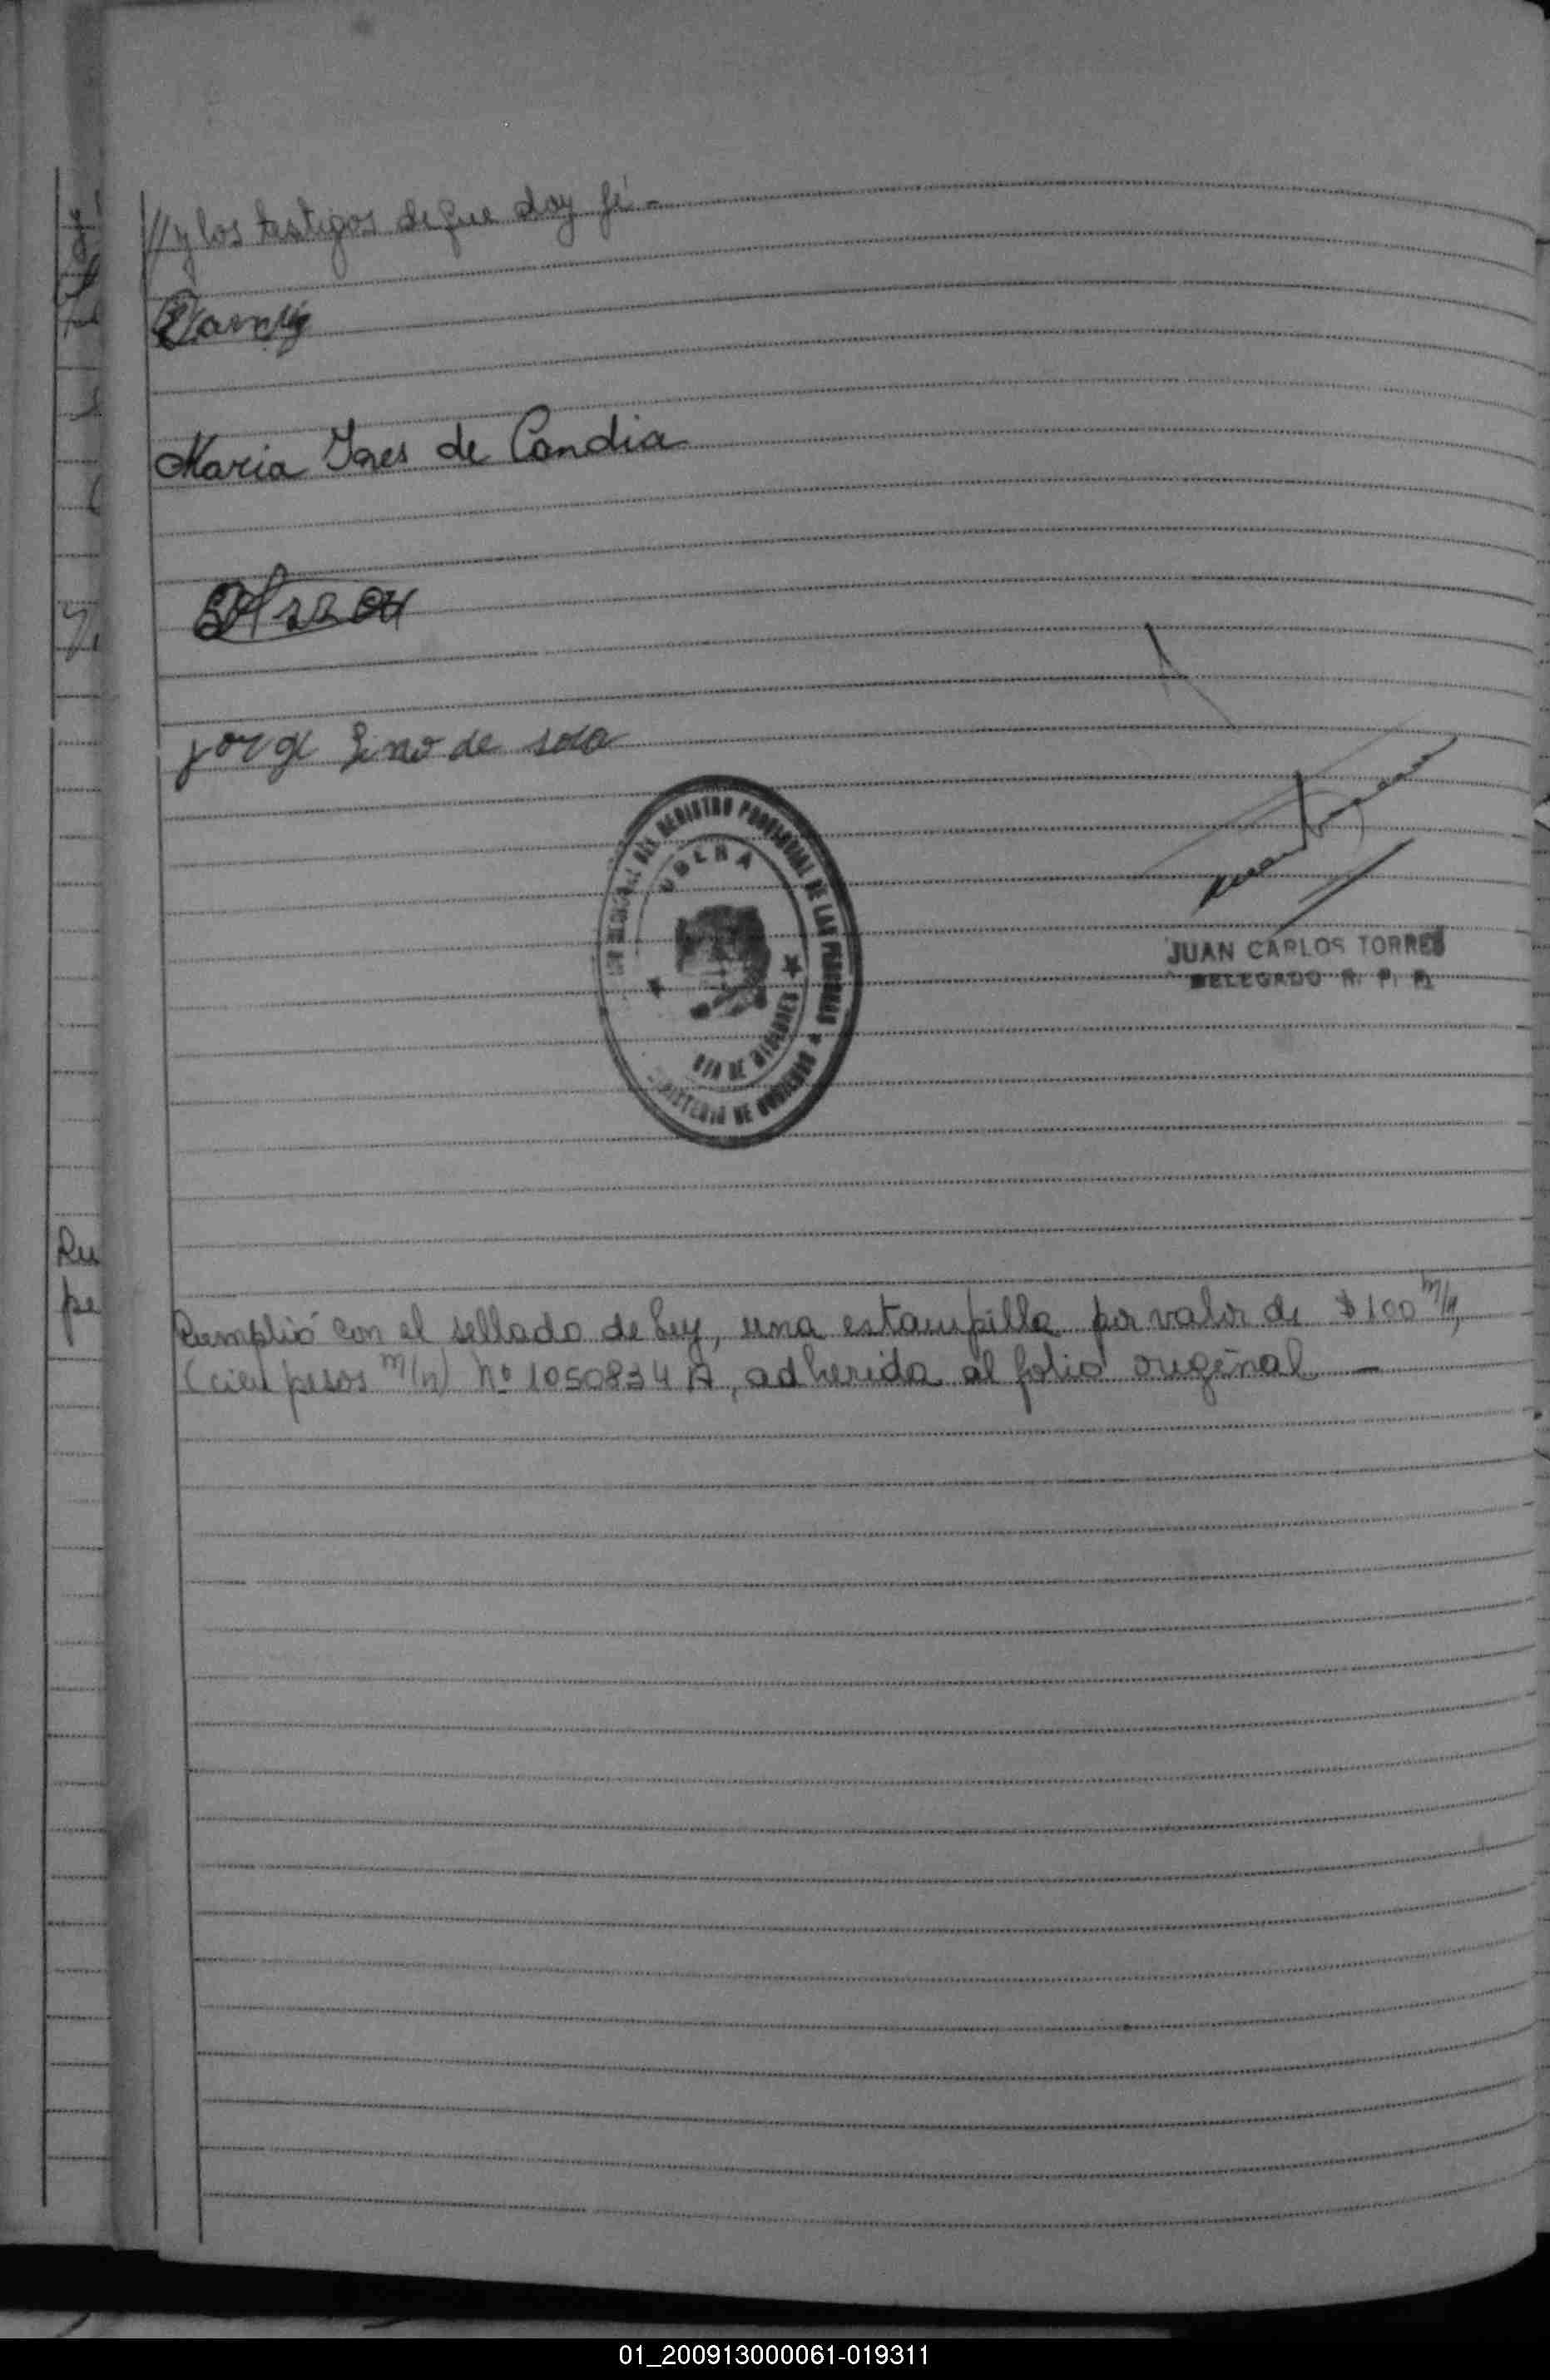 ///y los testigos de que doy fé.-
Maria Ines de Candia
jorge Lino de sosa
DEL REGISTRO PROVINCIAL DE LAS PERSONAS ★
MINISTERIO DE GOBIERNO
UBERA
CIA DE MISIONES
JUAN CARLOS TORRES
DELEGADO R. P. P.
Ru
pe
Cumplió con el sellado de Ley, una estampilla por valor de $100 m/n,
(cien pesos m/n) Nº 1050834 A, adherida al folio original. —
01_200913000061-019311